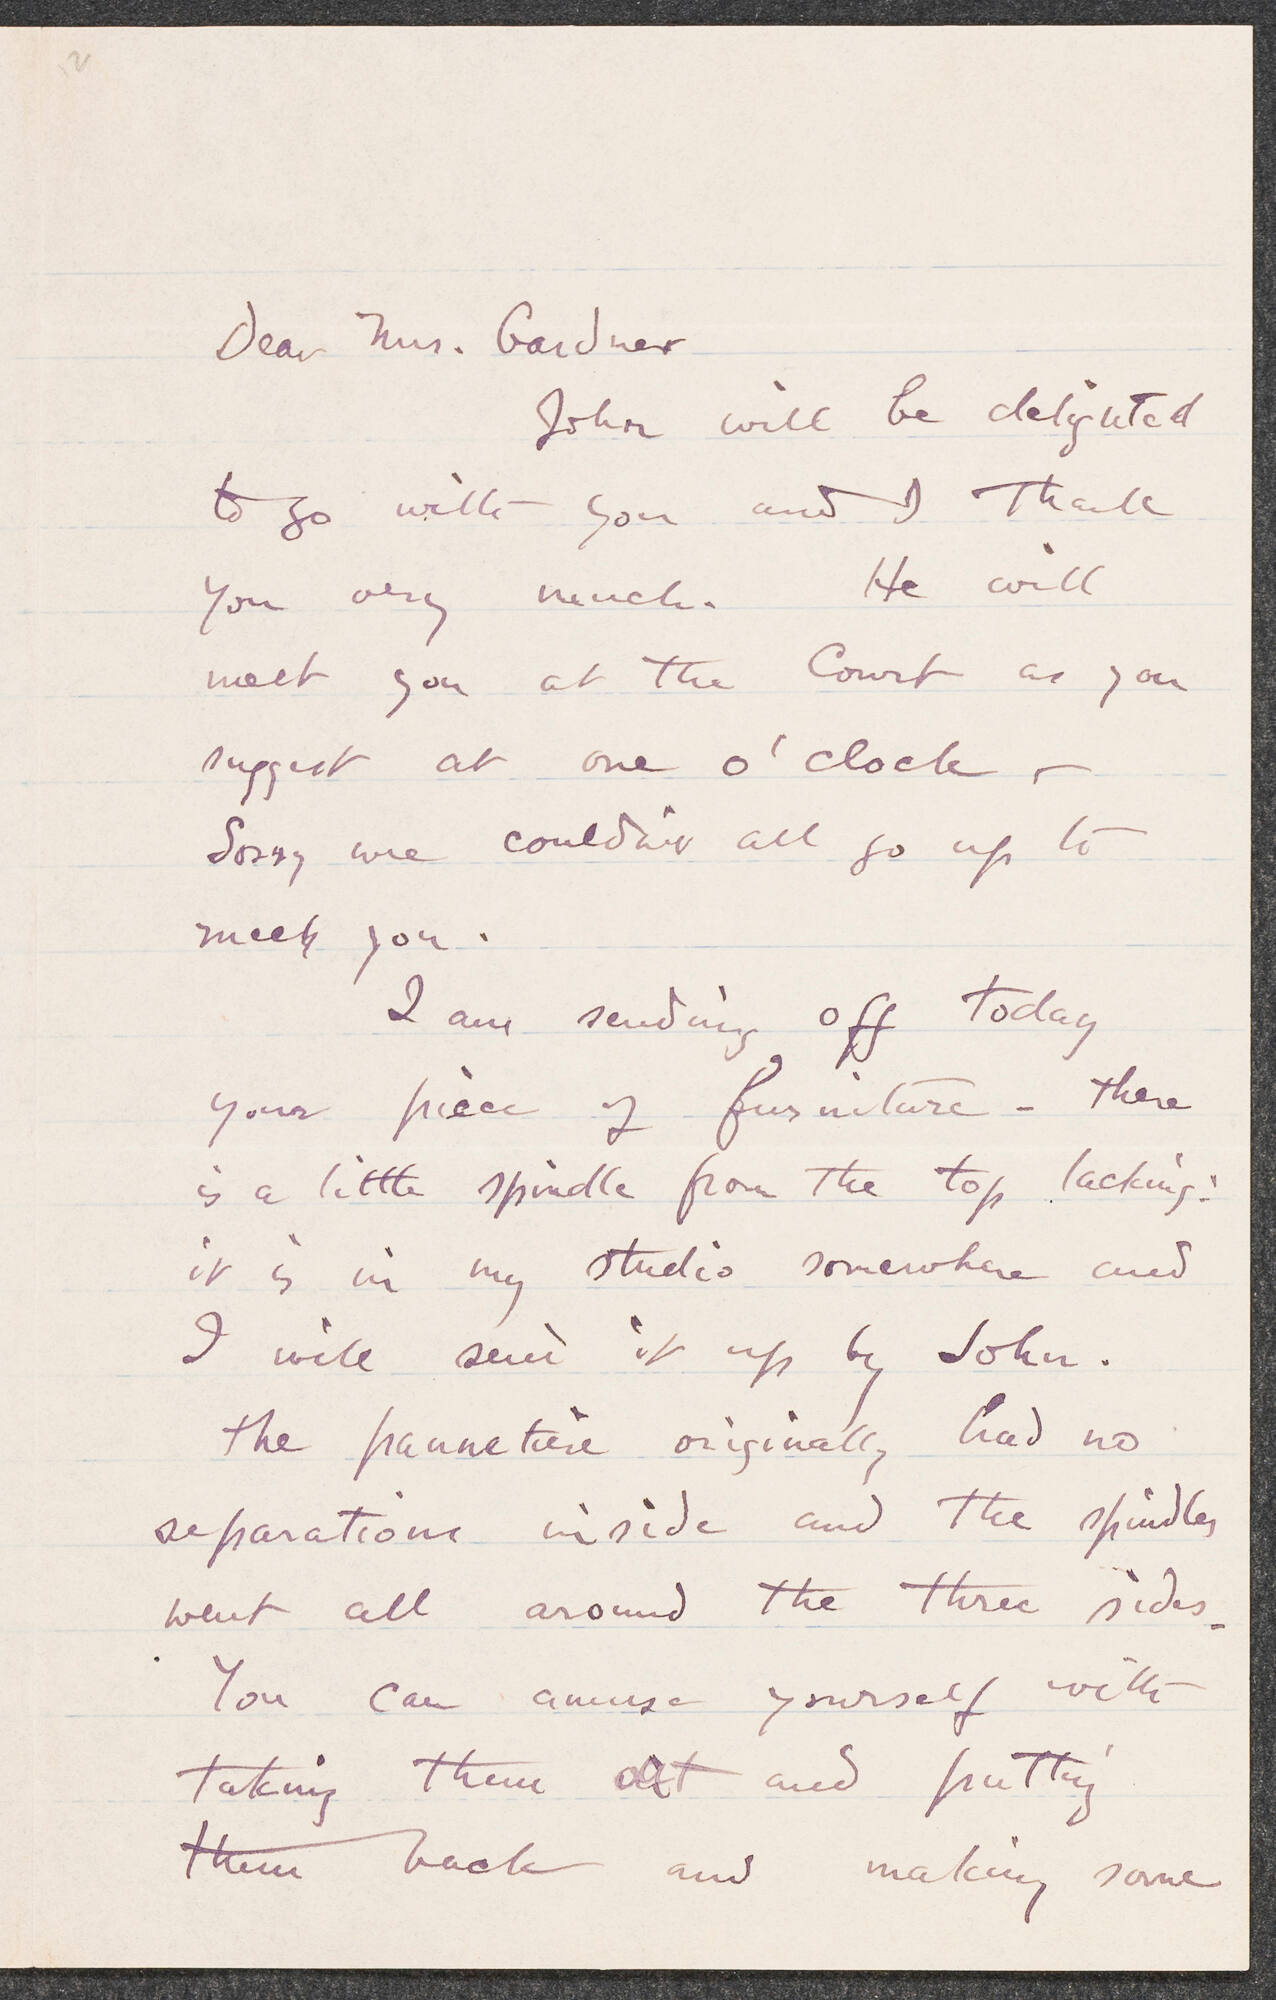 2
Dear Mrs. Gardner
John will be delighted
to go with you and I thank
you very much. He will
meet you at the Court as you
suggest at one o'clock –
Sorry we couldn't all go up to
meet you.
I am sending off today
your piece of furniture - there
is a little spindle from the top lacking:
it is in my studio somewhere and
I will send it up by John.
the pannetiere originally had no
separations inside and the spindles
went all around the three sides -
You can amuse yourself with
taking them out and putting
them back and making some